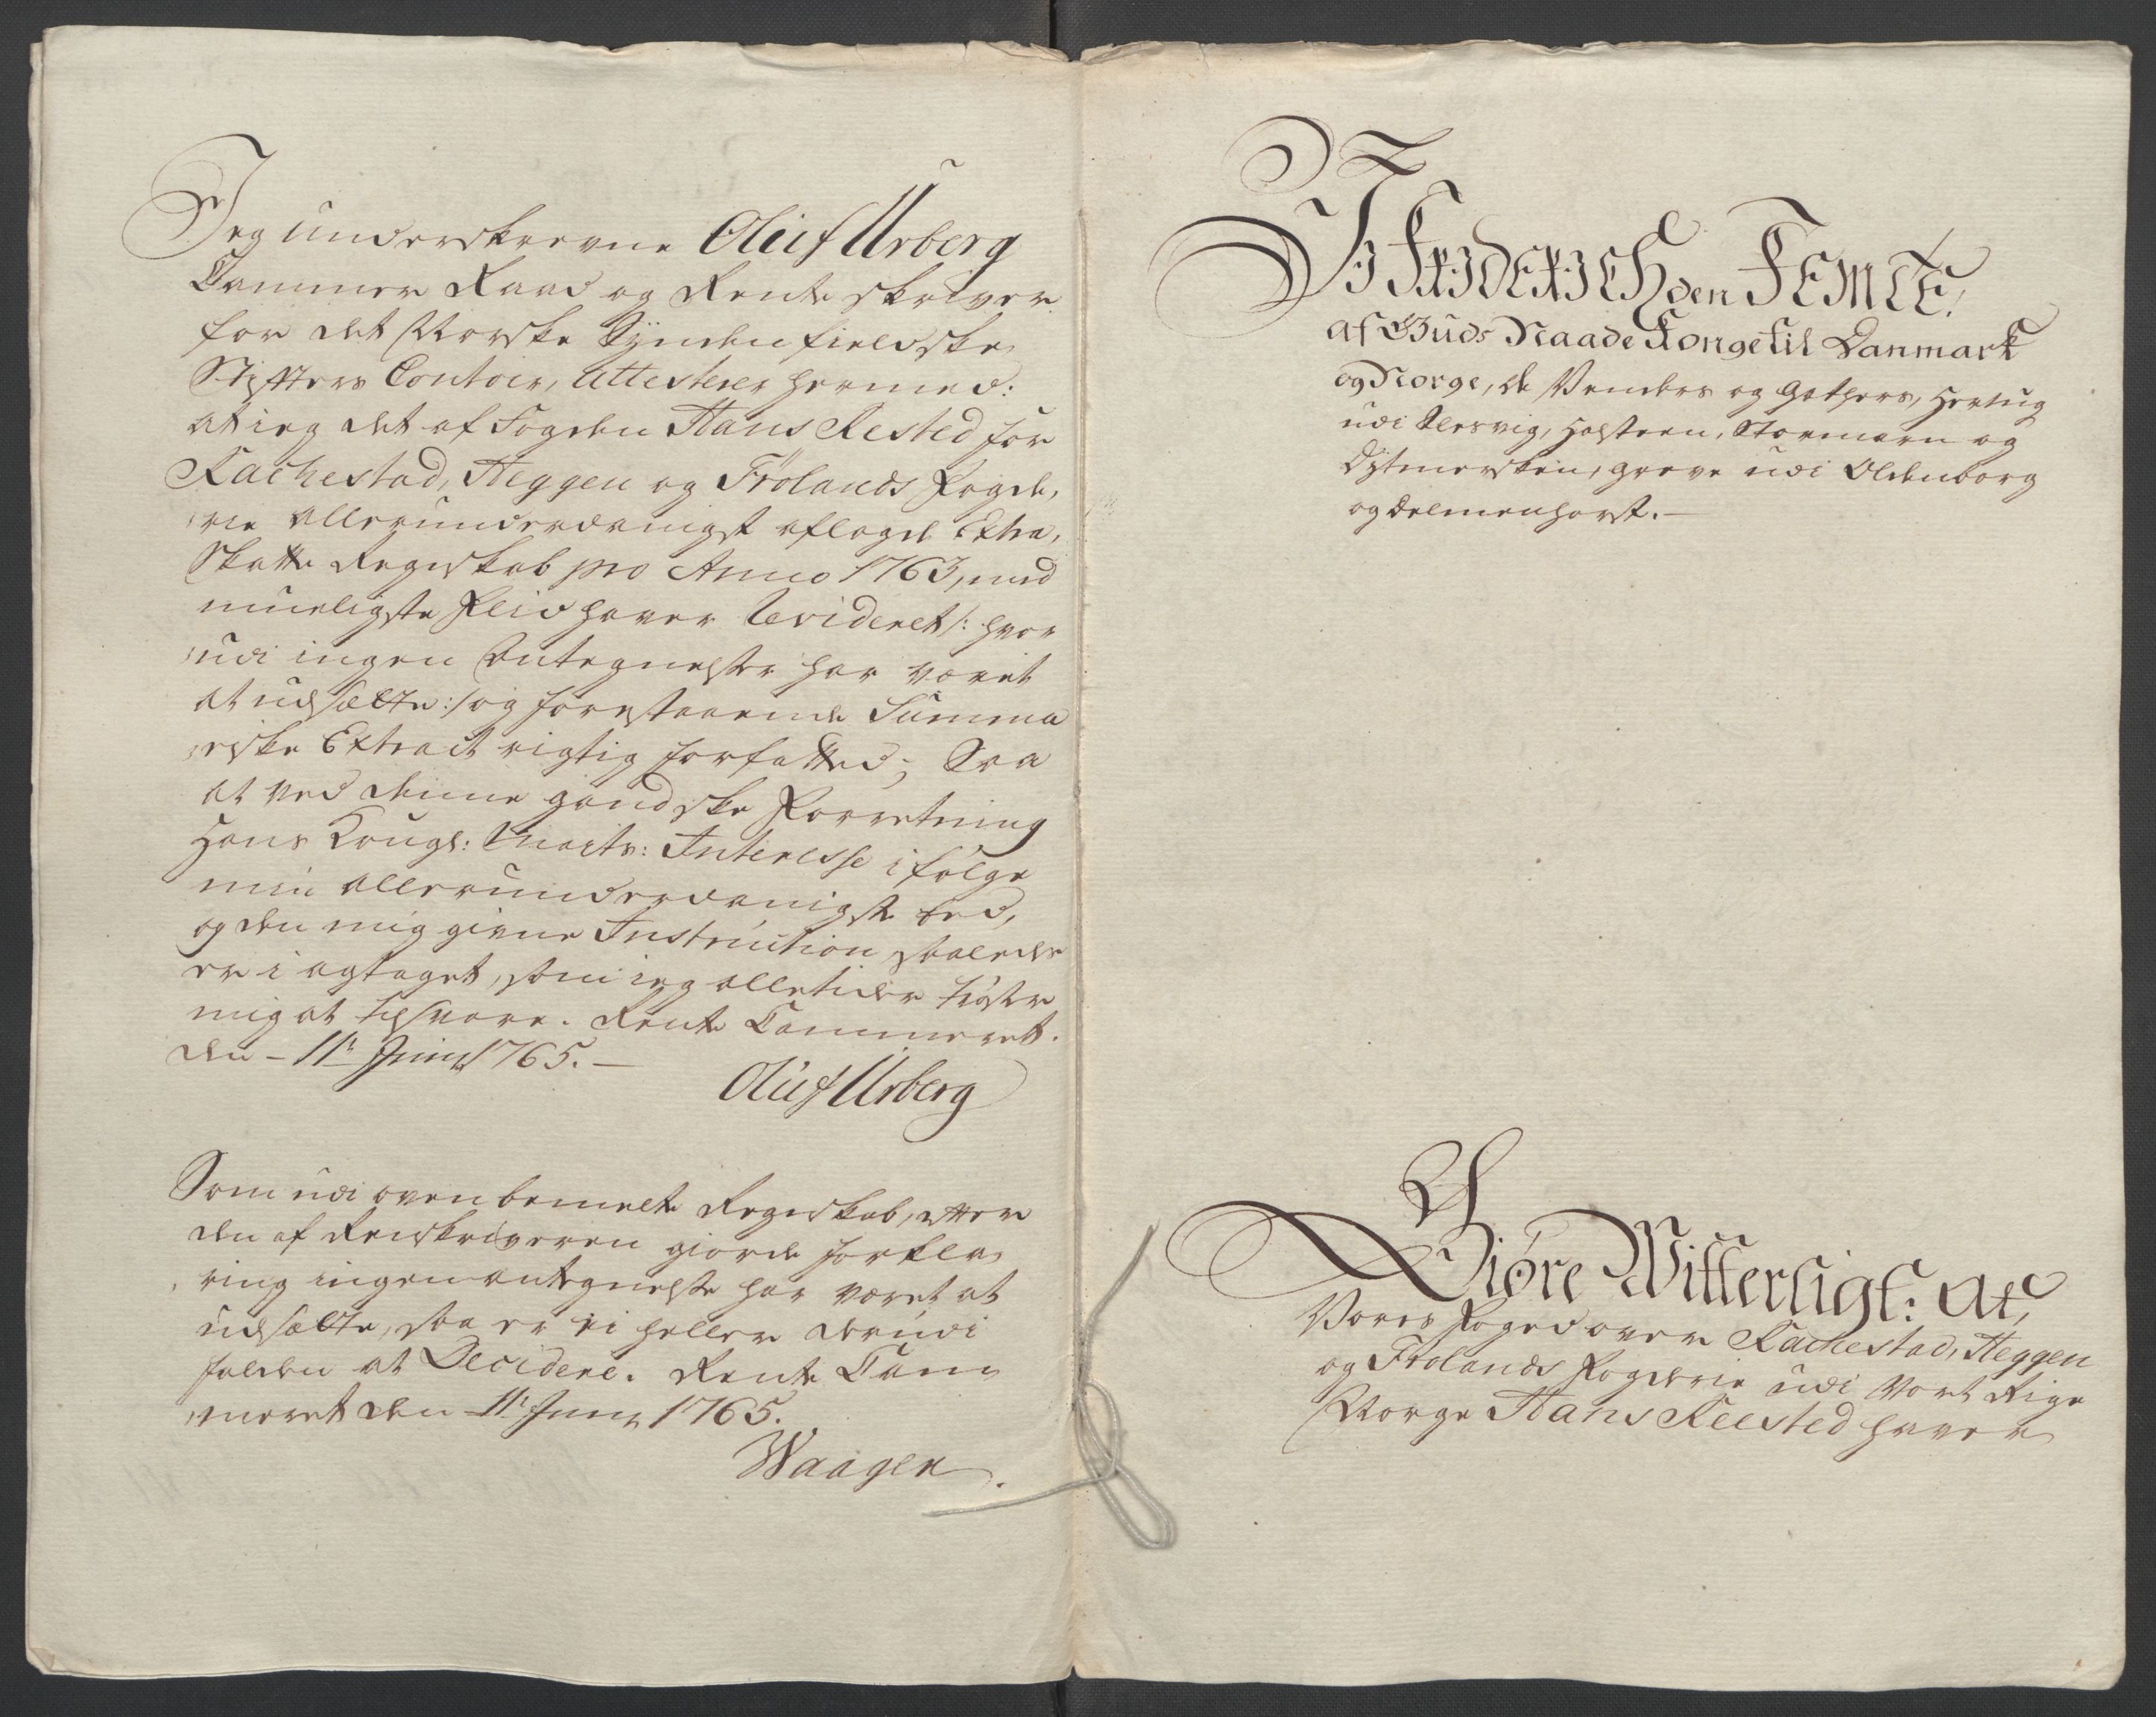 Jeg underskrevne Oluf Urberg
Cammer Raad og Rente skriver
for det Norske Synden fieldske
Stifters Contoir, Attesterer hermed:
at ieg det af Fogden Hans Rested for
Rachestad, Heggen og Frølands Fogde,
rie allerunderdanigst aflagde Extra,
Skatte Regnskab pro Anno 1763, med
mueligste Fliid haver Revideret /: hvor
udi ingen Antegnelser har været
at udsætte :/ og forestaaende Summa
riske Extract rigtig forfatted; Saa
at ved denne gandske Forretning
Hans Kongl: Mayts: Interesse i følge
min allerunderdanigste Eed,
og den mig givne Instruction saaledes
er i agtaget, som ieg alletider trøster
mig at tilsvare. Rente Cammeret.
den - 11t Junii 1765. -
Oluf Urberg
Som udi ovenbemelte Regnskab, efter
den af Renskriveren giorde Forkla
ring ingen antegnelse har været at
udsætte, saa er ei heller derudi
falden at Decidere. Rente Cam
meret den 11t Junii 1765.
Waagen.
Vi Friderich den Femte,
af Guds Naade Konge til Danmark
og Norge, de Venders og Gothers, Hertug
udi Slesvig, Holsteen, Stormarn og
Dytmersken, Greve udi Oldenborg
og Delmenhorst. -
Giøre Witterligt: At,
Vores Foged over Rachestad, Heggen
og Frølands Fogderie udi Vort Rige
Norge Hans Reested haver